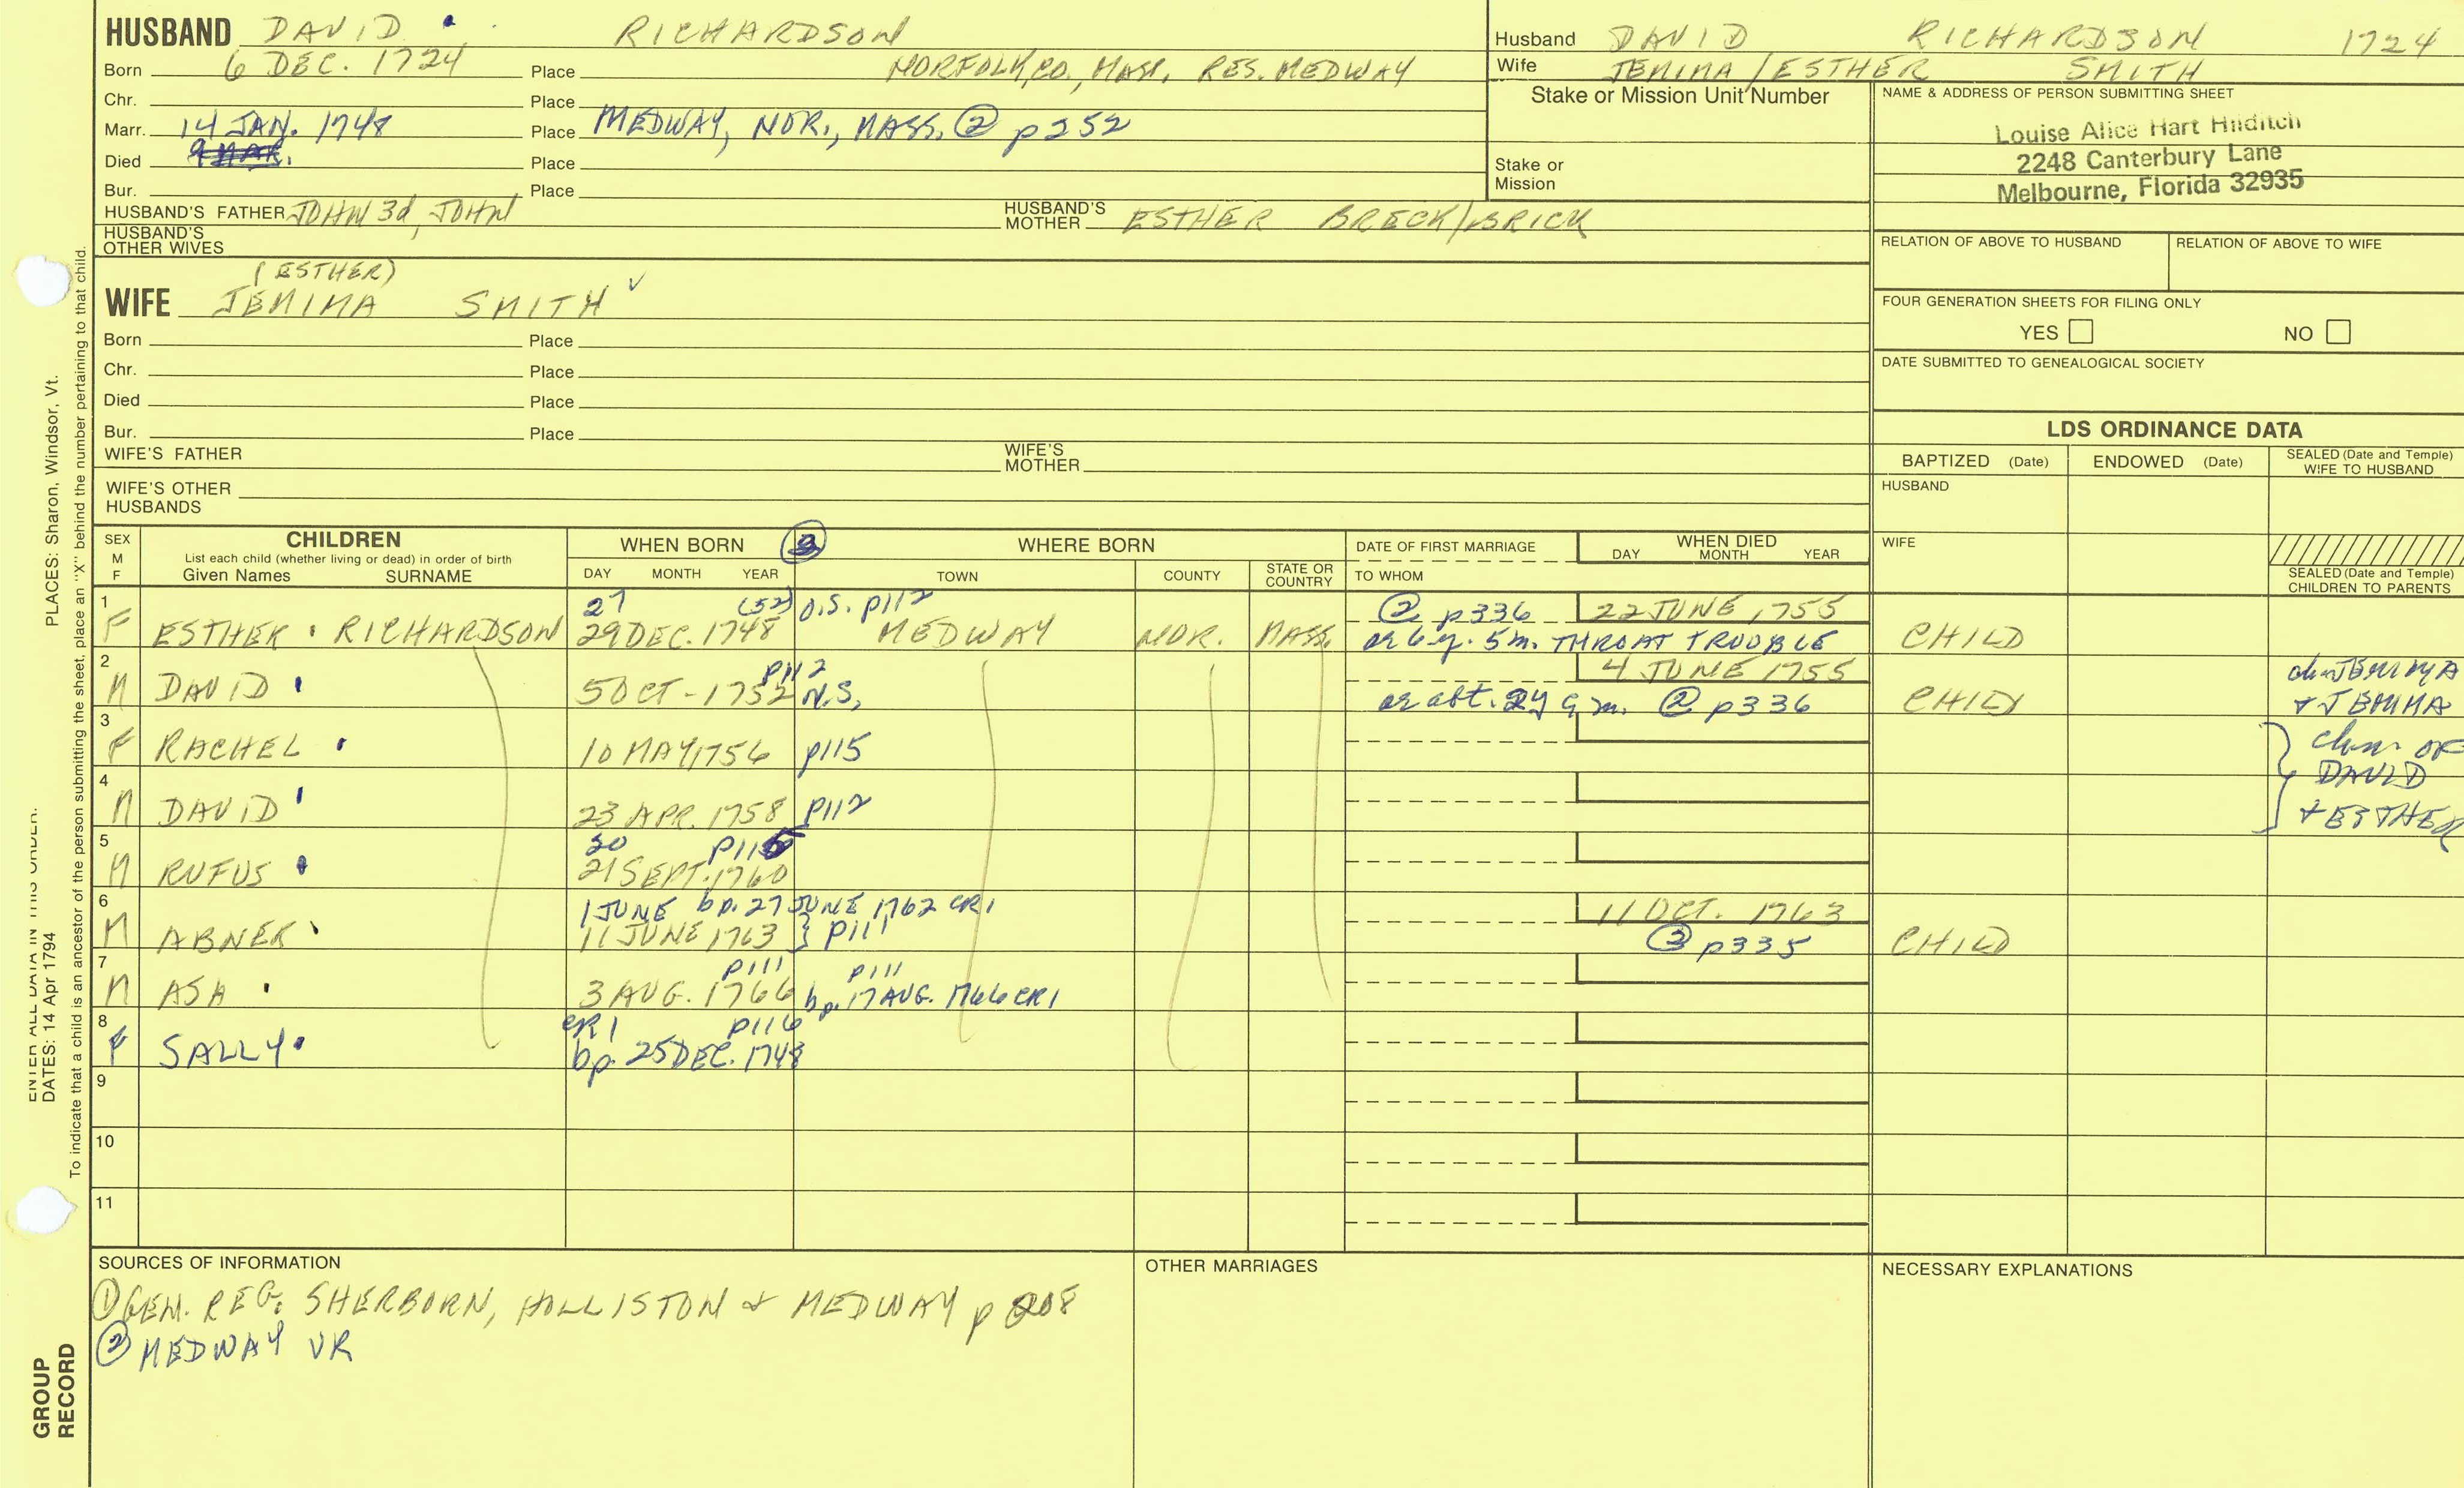 HUSBAND DAVID RICHARDSON
Born 6 DEC. 1724 Place NORFOLK, CO., MASS. RES. MEDWAY
Chr. Place
Marr. 14 JAN. 1748 Place MEDWAY, NOR., MASS. ② p252
9 MAR.
Died Place
Bur. Place
HUSBAND'S FATHER JOHN 3d, JOHN HUSBAND'S MOTHER ESTHER BRECK/BRICK
HUSBAND'S OTHER WIVES
(ESTHER)
WIFE JEMIMA SMITH ✓
Born Place
Chr. Place
Died Place
Bur. Place
WIFE'S FATHER WIFE'S MOTHER
WIFE'S OTHER HUSBANDS
Husband DAVID RICHARDSON 1724
Wife JEMIMA/ESTHER SMITH
Stake or Mission Unit Number
Stake or Mission
NAME & ADDRESS OF PERSON SUBMITTING SHEET
Louise Alice Hart Hilditch
2248 Canterbury Lane
Melbourne, Florida 32935
RELATION OF ABOVE TO HUSBAND RELATION OF ABOVE TO WIFE
FOUR GENERATION SHEETS FOR FILING ONLY
YES NO
DATE SUBMITTED TO GENEALOGICAL SOCIETY
LDS ORDINANCE DATA
BAPTIZED (Date) ENDOWED (Date) SEALED (Date and Temple) WIFE TO HUSBAND
HUSBAND
WIFE
SEALED (Date and Temple)
CHILDREN TO PARENTS
SEX M F
CHILDREN
List each child (whether living or dead) in order of birth
Given Names SURNAME
WHEN BORN
DAY MONTH YEAR
WHERE BORN
TOWN COUNTY STATE OR COUNTRY
DATE OF FIRST MARRIAGE
TO WHOM
WHEN DIED
DAY MONTH YEAR
1 27 (52) O.S. p112 ② p336 22 JUNE 1755
F ESTHER RICHARDSON 29 DEC. 1748 MEDWAY NOR. MASS. ae 6 y. 5 m. THROAT TROUBLE CHILD
2 p112 4 JUNE 1755
M DAVID 5 OCT - 1752 N.S. ae abt. 2y 9 m. ② p336 CHILD
JEMIMA
+ JEMIMA
3
F RACHEL 10 MAY 1756 p115
chn. OF
DAVID
+ ESTHER
4
M DAVID 23 APR. 1758 p112
5 20 p115
M RUFUS 21 SEPT. 1760
6 1 JUNE bp. 27 JUNE 1762 CR1 11 OCT. 1763
M ABNER 11 JUNE 1763 } p111 ② p335 CHILD
7 p111 p111
M ASA 3 AUG. 1766 bp. 17 AUG. 1766 CR1
8 CR1 p116
F SALLY bp. 25 DEC. 1748
9
10
11
SOURCES OF INFORMATION
① GEN. REG. SHERBORN, HOLLISTON & MEDWAY p 208
② MEDWAY VR
OTHER MARRIAGES
NECESSARY EXPLANATIONS
PLACES: Sharon, Windsor, Vt.
To indicate that a child is an ancestor of the person submitting the sheet, place an "X" behind the number pertaining to that child.
ENTER ALL DATA IN THIS ORDER:
DATES: 14 Apr 1794
GROUP RECORD